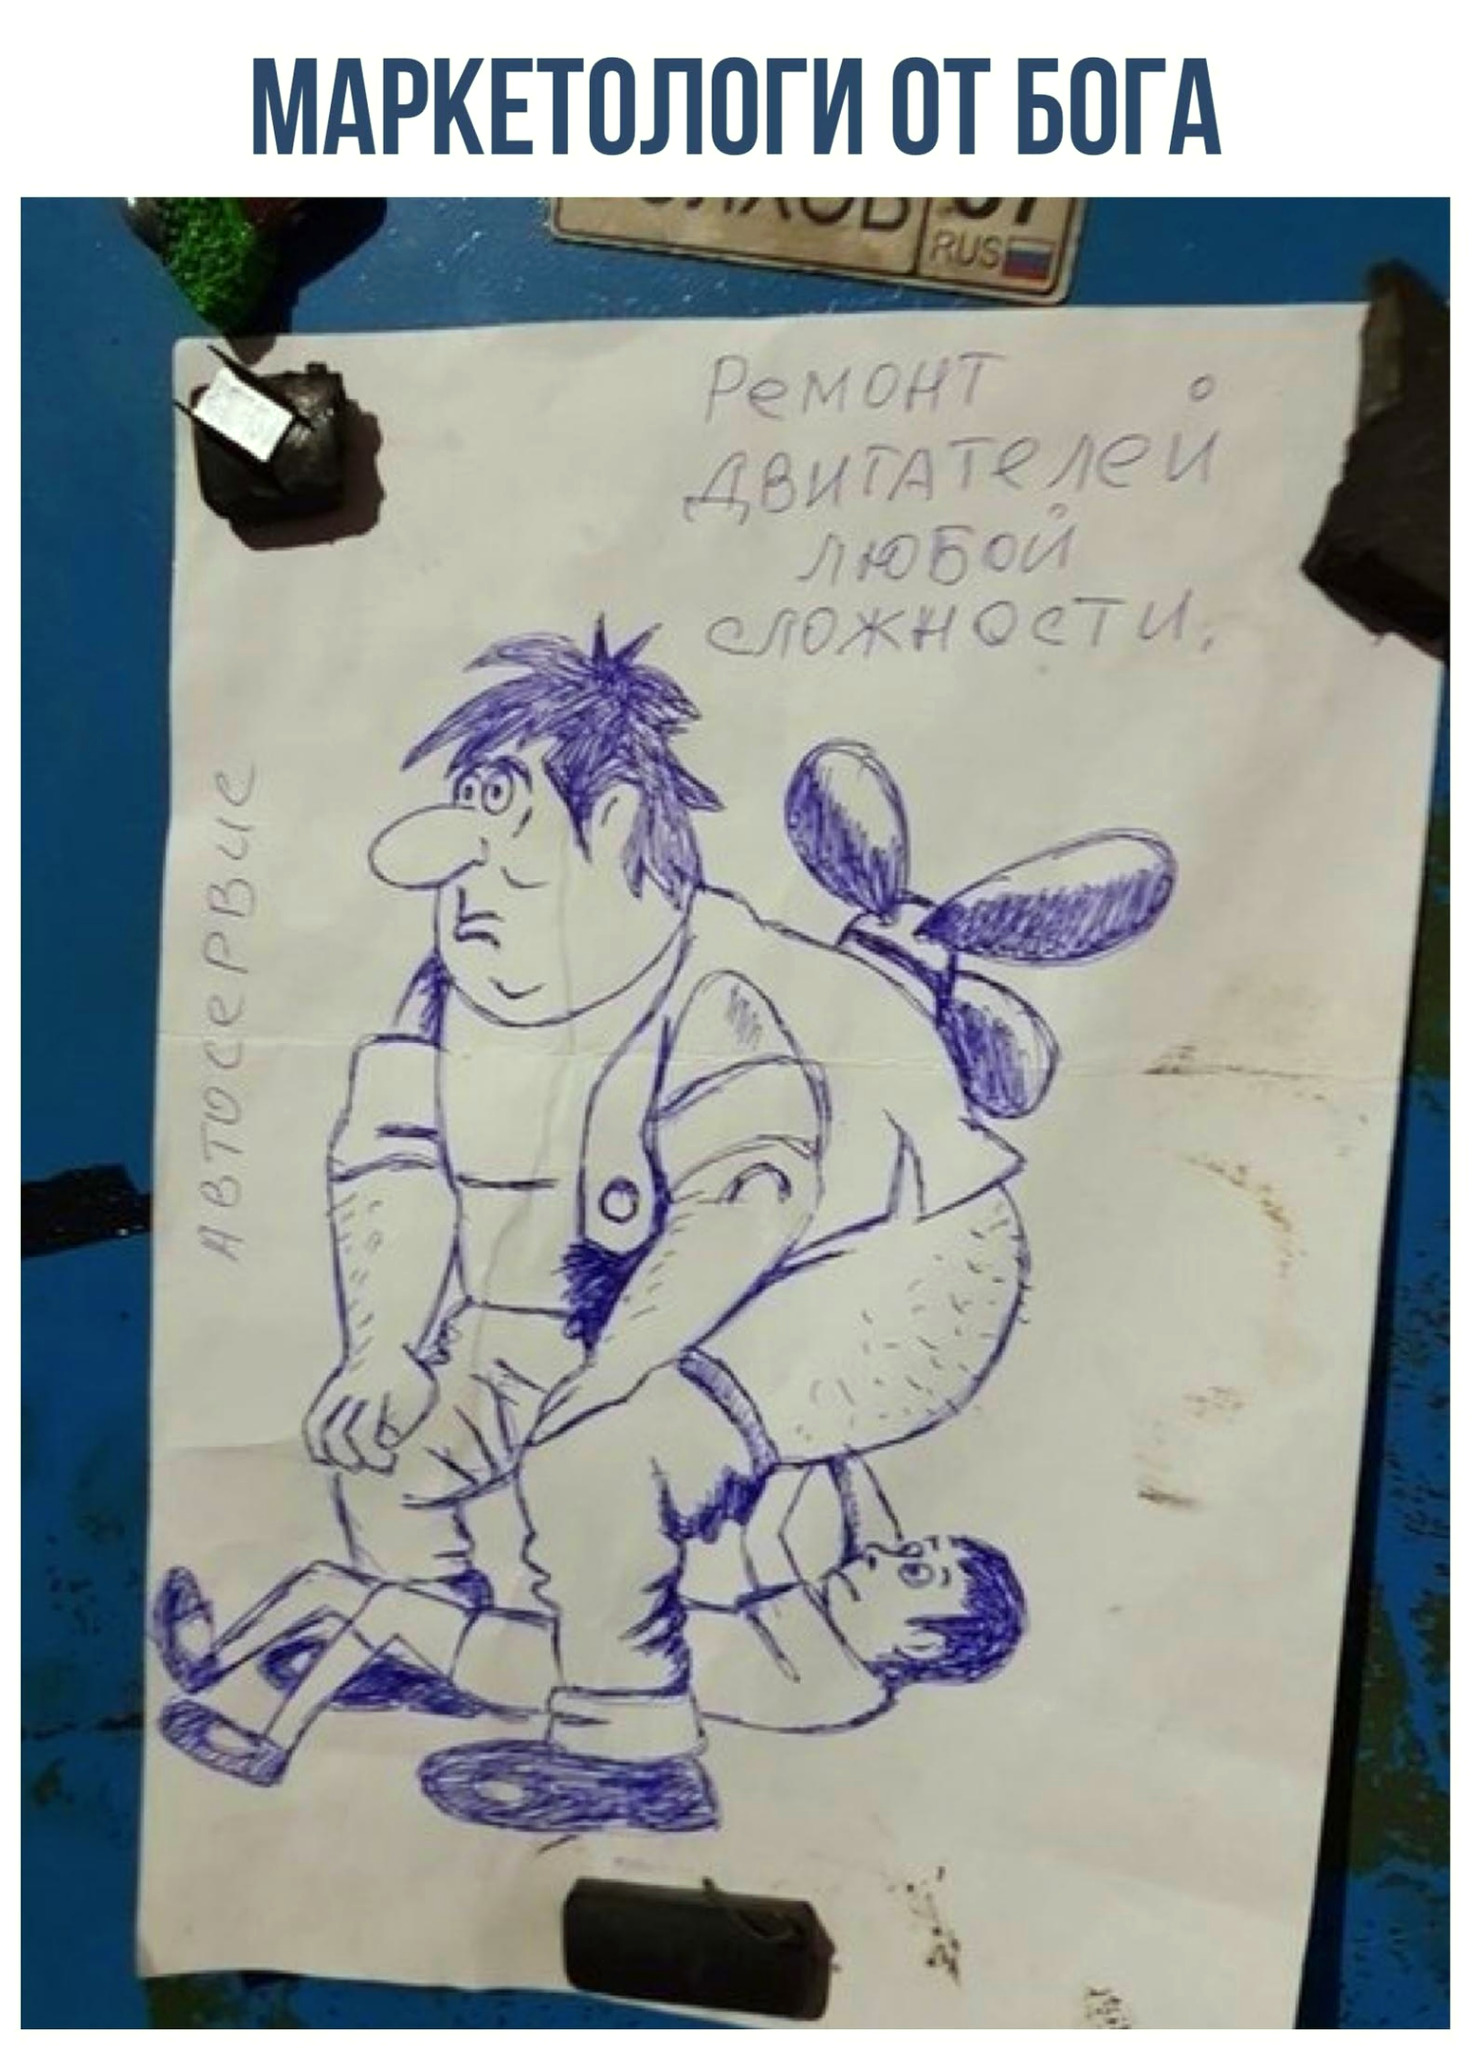 МАРКЕТОЛОГИ ОТ БОГА
RUS
Ремонт
двигателей
любой
сложности.
Автосервис